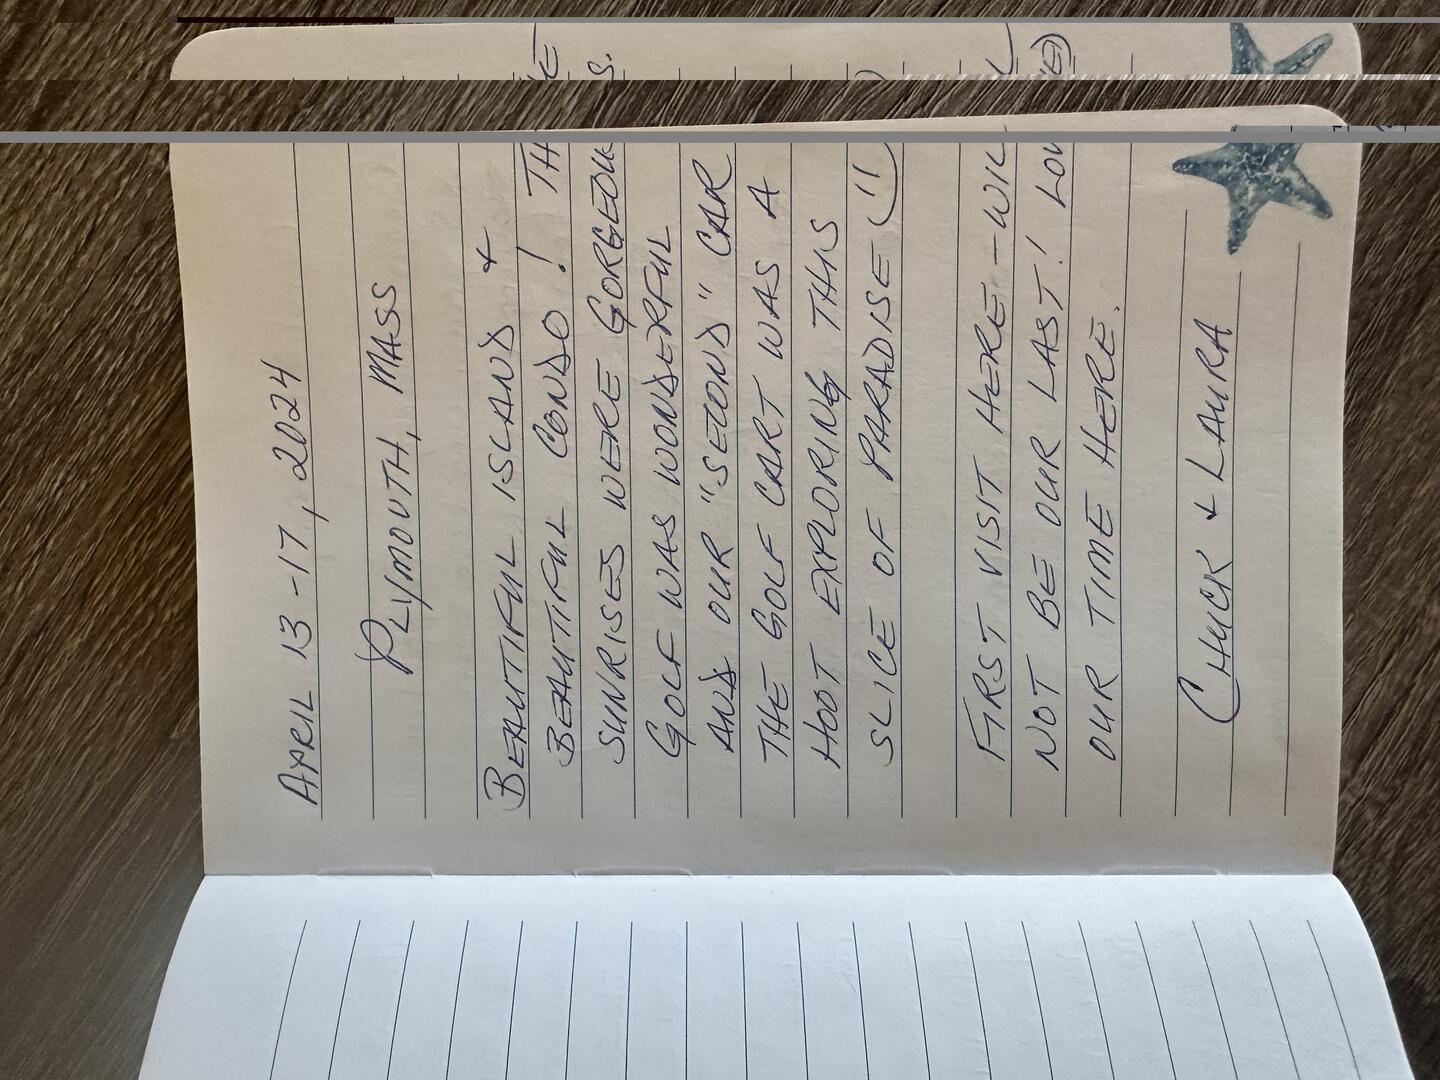 APRIL 13-17, 2024
PLYMOUTH, MASS
BEAUTIFUL ISLAND &
BEAUTIFUL CONDO! THE
SUNRISES WERE GORGEOUS.
GOLF WAS WONDERFUL
AND OUR "SECOND" CAR
THE GOLF CART WAS A
HOOT EXPLORING THIS
SLICE OF PARADISE
FIRST VISIT HERE - WILL
NOT BE OUR LAST! LOVE(D)
OUR TIME HERE.
CHUCK & LAURA